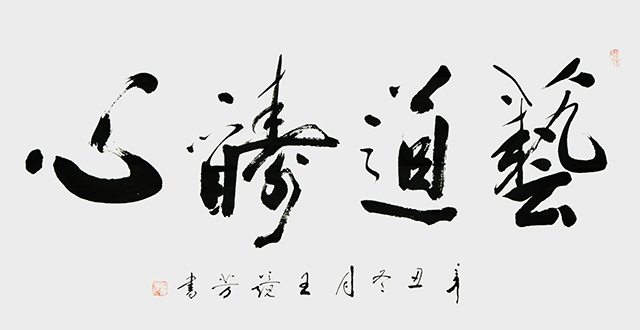 藝道心
辛丑冬月王鏡芳書